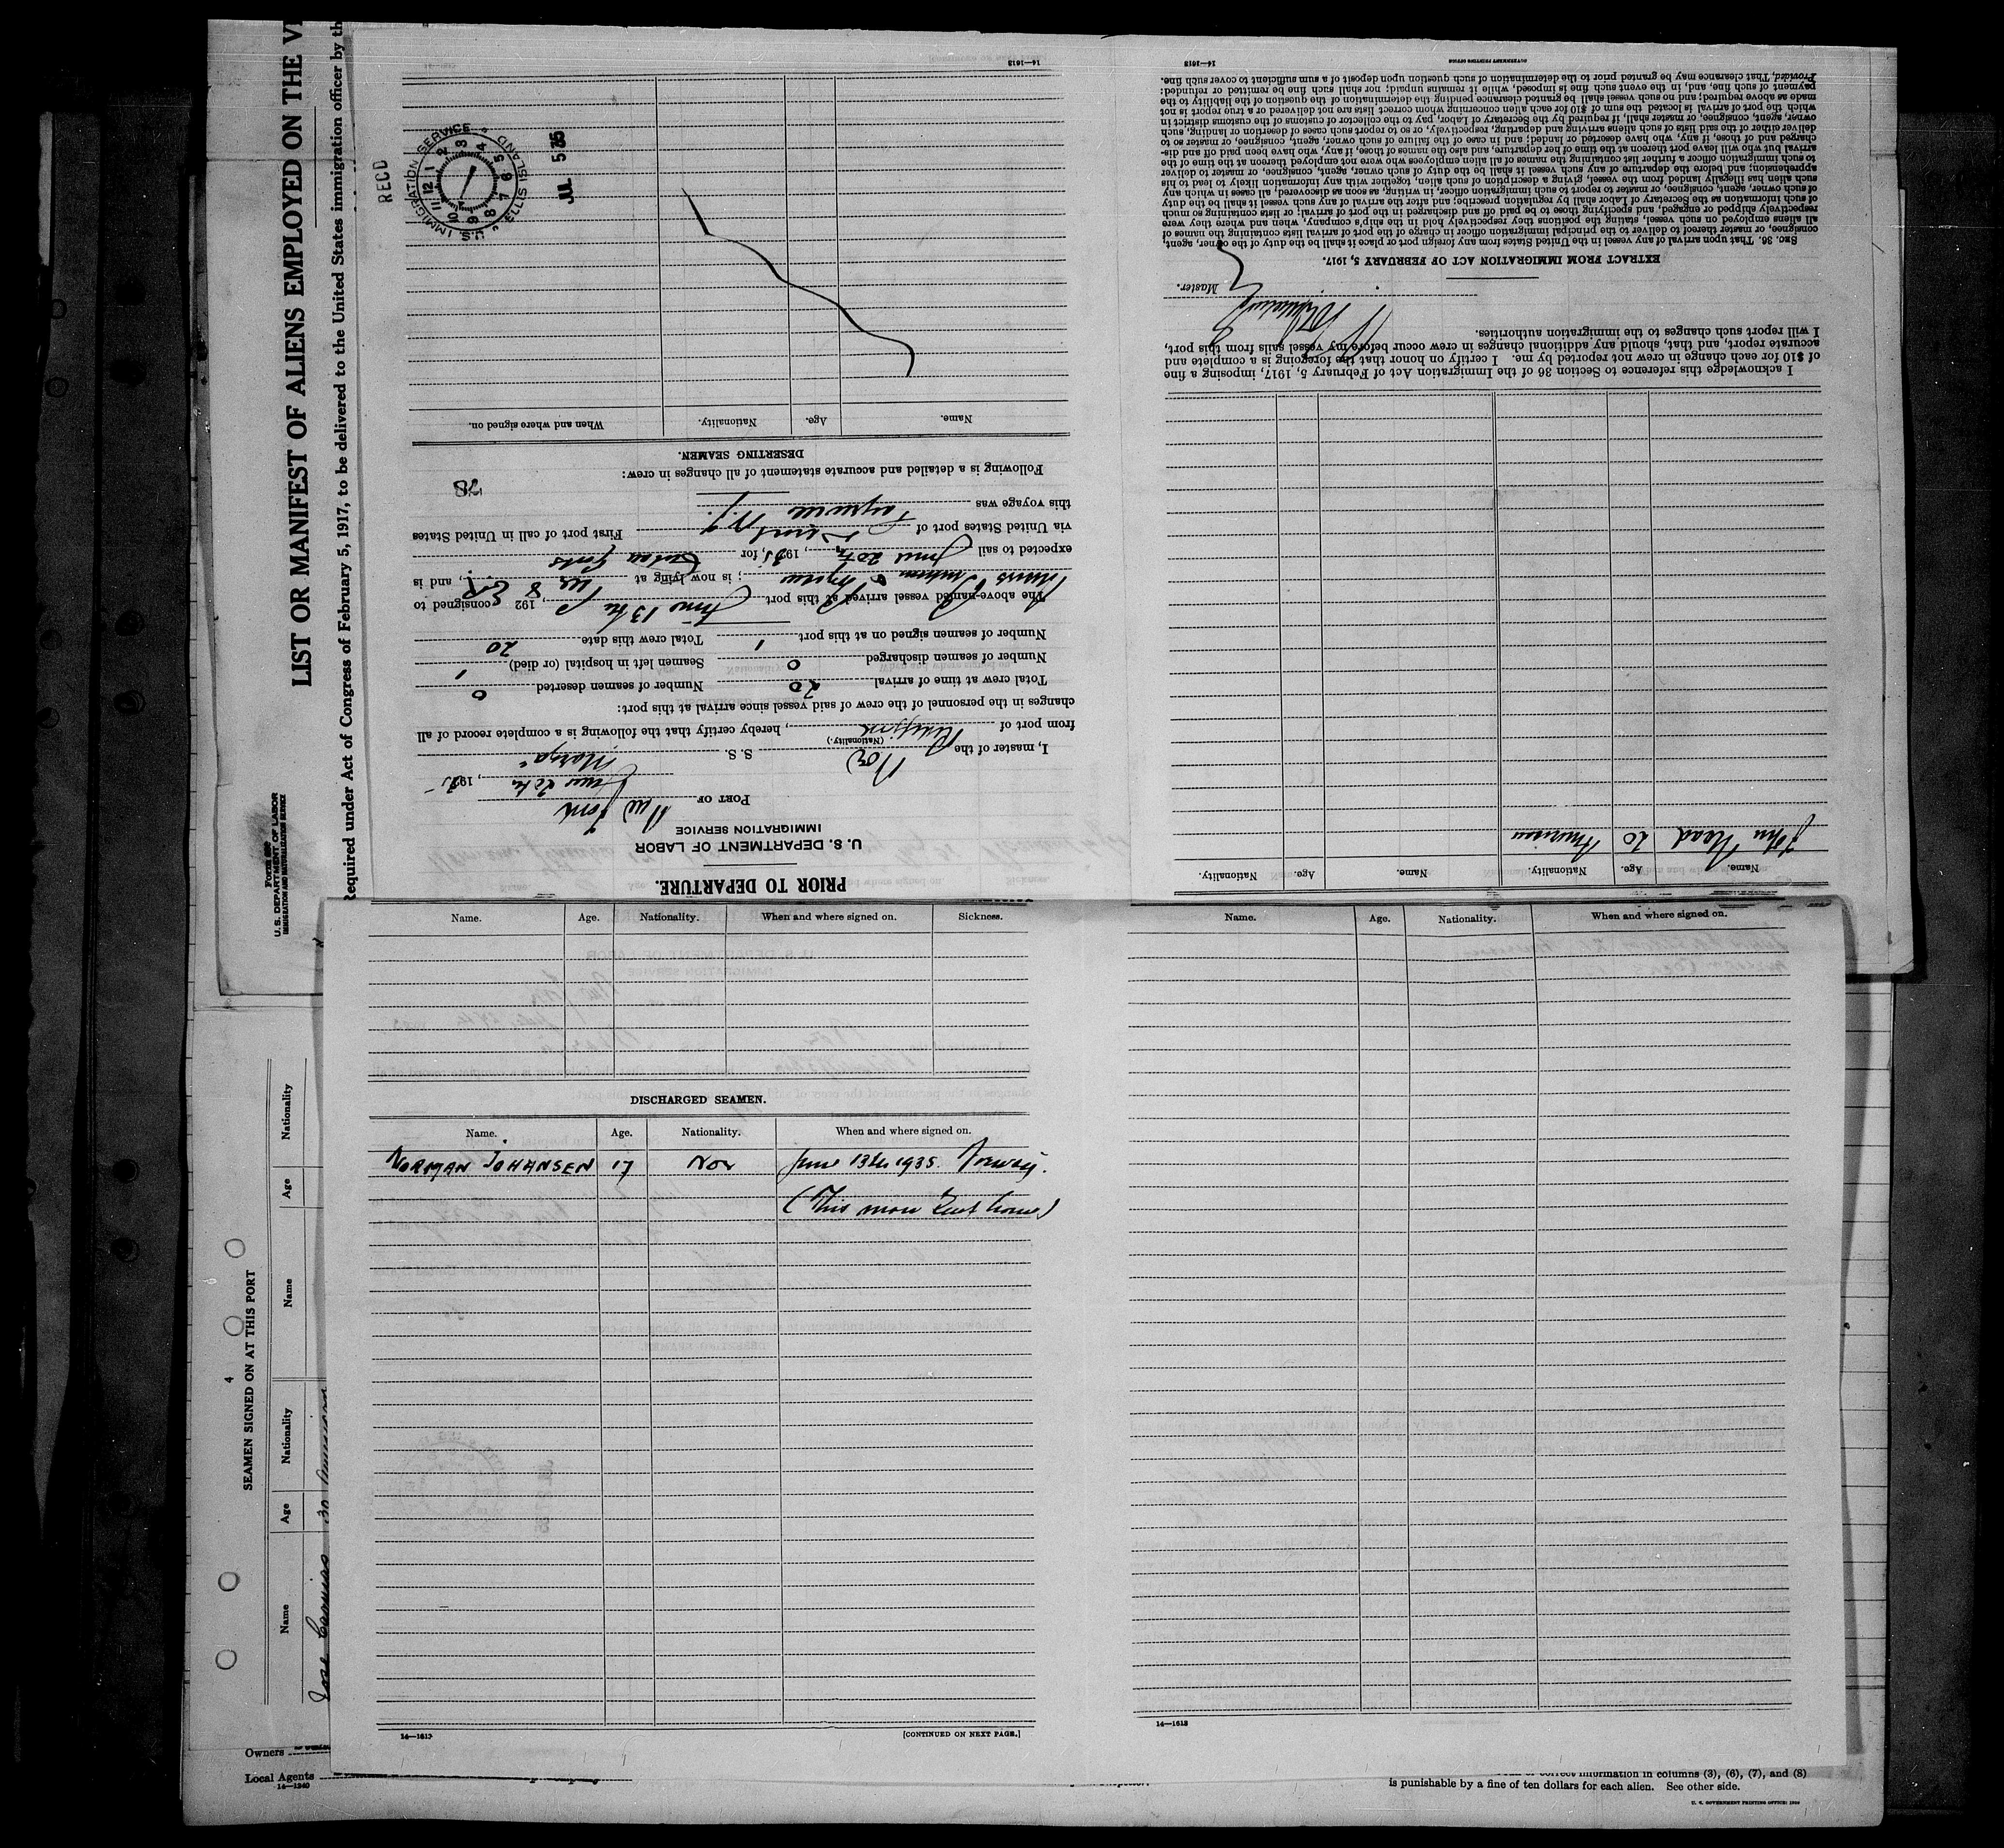 LIST OR MANIFEST OF ALIENS EMPLOYED ON THE
Required under Act of Congress of February 5, 1917, to be delivered to the United States immigration officer by th
U. S. DEPARTMENT OF LABOR
IMMIGRATION AND NATURALIZATION SERVICE
PRIOR TO DEPARTURE.
U. S. DEPARTMENT OF LABOR
IMMIGRATION SERVICE
PORT OF New York
June 20th, 1935
I, master of the Nor S. S. Marga
(Nationality.)
from port of , hereby certify that the following is a complete record of all
changes in the personnel of the crew of said vessel since arrival at this port:
Total crew at time of arrival 20 Number of seamen deserted 0
Number of seamen discharged 0 Seamen left in hospital (or died) 1
Number of seamen signed on at this port 1 Total crew this date 20
The above-named vessel arrived at this port June 13th, 192 consigned to
; is now lying at Pier 8 E.R., and is
expected to sail June 20th, 1935, for
via United States port of First port of call in United States
this voyage was N.J.
Following is a detailed and accurate statement of all changes in crew:
DESERTING SEAMEN.
Name. Age. Nationality. When and where signed on.
RECD
U.S. IMMIGRATION SERVICE ELLIS ISLAND
12 1 2 3 4 5 6 7 8 9 10 11
JUL 5 35
14—1613
Name. Age. Nationality. Name. Age. Nationality.
John 20 American
I acknowledge this reference to Section 36 of the Immigration Act of February 5, 1917, imposing a fine
of $10 for each change in crew not reported by me. I certify on honor that the foregoing is a complete and
accurate report, and that, should any additional changes in crew occur before my vessel sails from this port,
I will report such changes to the immigration authorities.
Master.
EXTRACT FROM IMMIGRATION ACT OF FEBRUARY 5, 1917.
SEC. 36. That upon arrival of any vessel in the United States from any foreign port or place it shall be the duty of the owner, agent,
consignee, or master thereof to deliver to the principal immigration officer in charge of the port of arrival lists containing the names of
all aliens employed on such vessel, stating the positions they respectively hold in the ship's company, when and where they were
respectively shipped or engaged, and specifying those to be paid off and discharged in the port of arrival; or lists containing so much
of such information as the Secretary of Labor shall by regulation prescribe; and after the arrival of any such vessel it shall be the duty
of such owner, agent, consignee, or master to report to such immigration officer, in writing, as soon as discovered, all cases in which any
such alien has illegally landed from the vessel, giving a description of such alien, together with any information likely to lead to his
apprehension; and before the departure of any such vessel it shall be the duty of such owner, agent, consignee, or master to deliver
to such immigration officer a further list containing the names of all alien employees who were not employed thereon at the time of the
arrival but who will leave port thereon at the time of her departure, and also the names of those, if any, who have been paid off and dis-
charged and of those, if any, who have deserted or landed; and in case of the failure of such owner, agent, consignee, or master so to
deliver either of the said lists of such aliens arriving and departing, respectively, or so to report such cases of desertion or landing, such
owner, agent, consignee, or master shall, if required by the Secretary of Labor, pay to the collector of customs of the customs district in
which the port of arrival is located the sum of $10 for each alien concerning whom correct lists are not delivered or a true report is not
made as above required; and no such vessel shall be granted clearance pending the determination of the question of the liability to the
payment of such fine, and, in the event such fine is imposed, while it remains unpaid; nor shall such fine be remitted or refunded:
Provided, That clearance may be granted prior to the determination of such question upon deposit of a sum sufficient to cover such fine.
14—1613 GOVERNMENT PRINTING OFFICE
Name. Age. Nationality. When and where signed on. Sickness.
DISCHARGED SEAMEN.
Name. Age. Nationality. When and where signed on.
NORMAN JOHANSEN 17 Nor June 13th 1935. Norway.
(This man sent home)
14—1613 [CONTINUED ON NEXT PAGE.]
Name. Age. Nationality. When and where signed on.
14—1613
4
SEAMEN SIGNED ON AT THIS PORT
Name Age Nationality Name Age Nationality
Jose 30 American
Owners
Local Agents
14—1240
correct information in columns (3), (6), (7), and (8)
is punishable by a fine of ten dollars for each alien. See other side.
U. S. GOVERNMENT PRINTING OFFICE